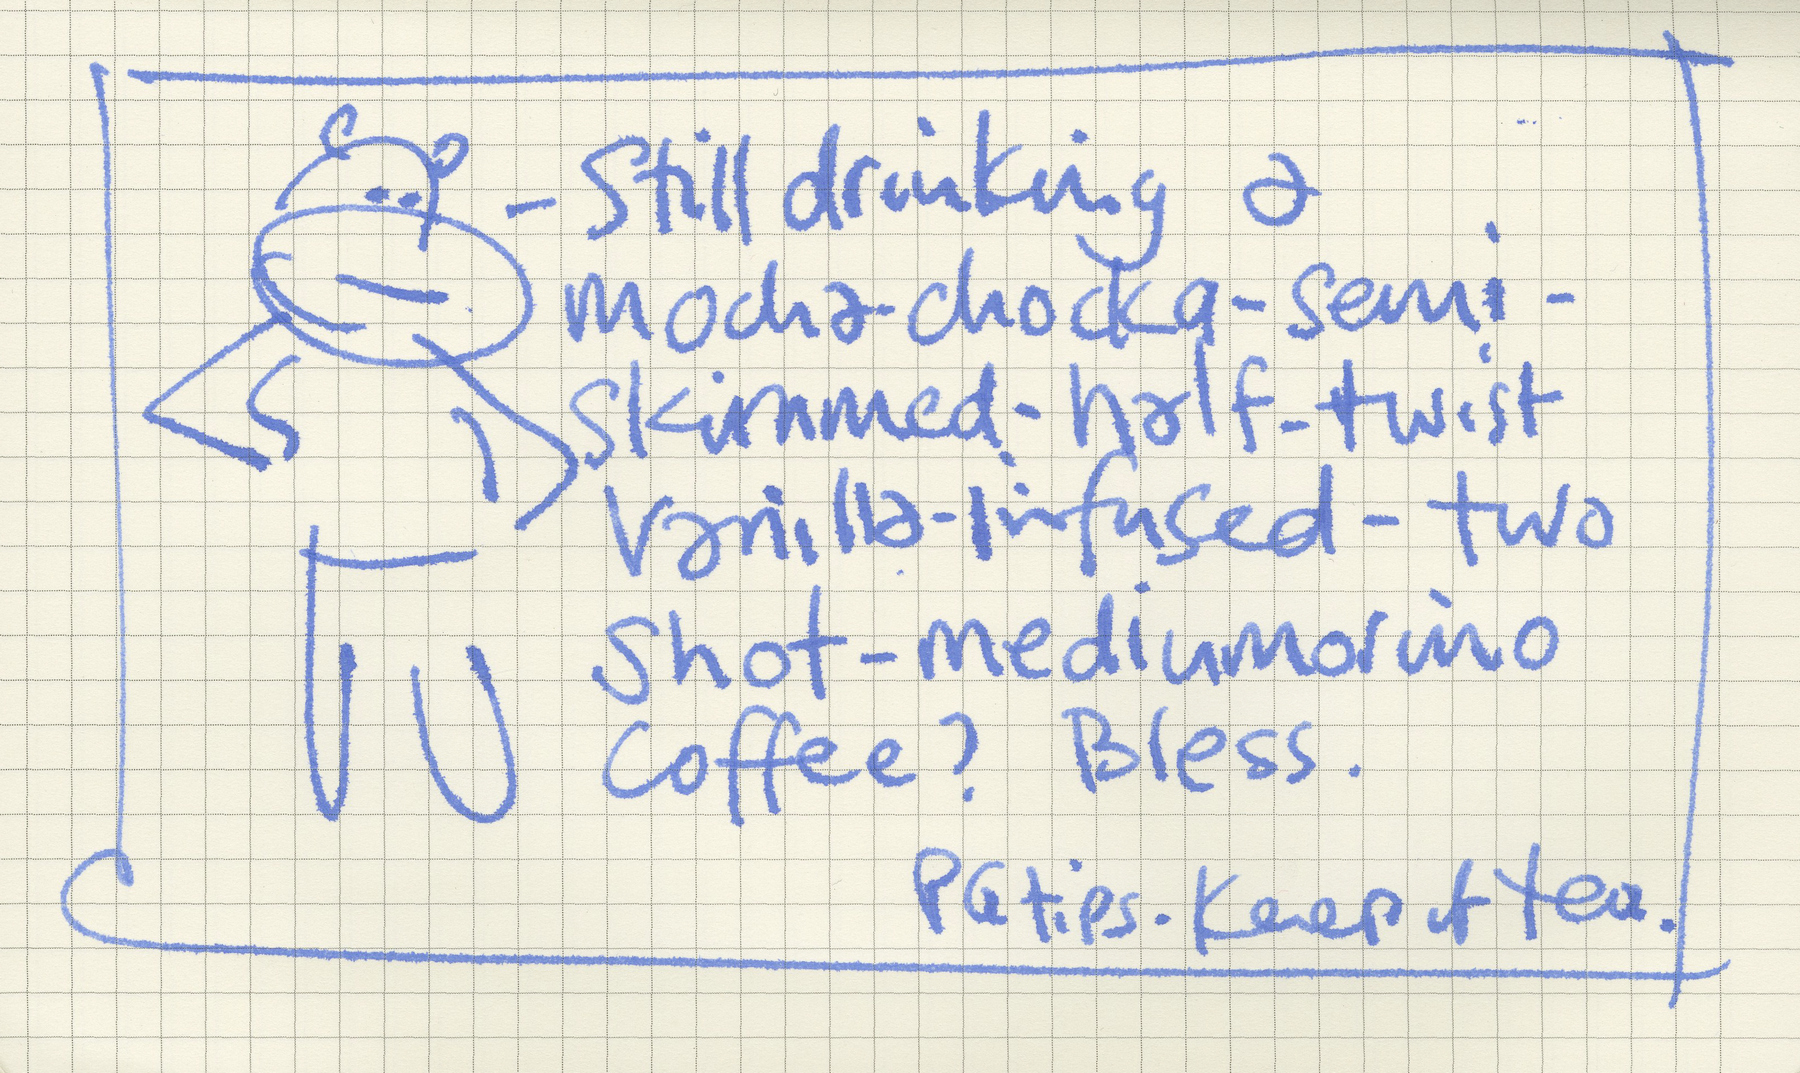 - Still drinking a
mocha-chocka-semi-
skimmed-half-twist
vanilla-infused-two
shot-mediumorino
coffee? Bless.
PG tips. Keep it tea.